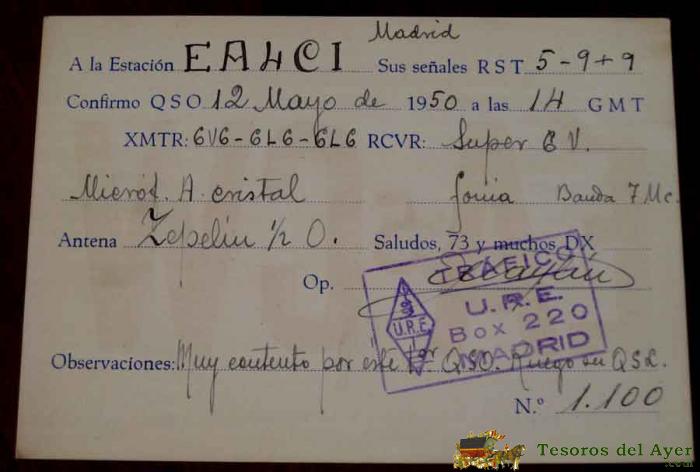 Madrid
A la Estación EA4CI Sus señales RST 5-9+9
Confirmo QSO 12 Mayo de 1950 a las 14 GMT
XMTR: 6V6-6L6-6L6 RCVR: Super 6 V.
Microf. A. cristal fonia Banda 7 Mc.
Antena Zepelin 1/2 O. Saludos, 73 y muchos DX
Op.
TRAFICO
U.R.E.
BOX 220
MADRID
U.R.E.
Observaciones: Muy contento por este 1er QSO. Ruego su QSL.
N.º 1.100
Tesoros del Ayer
.com